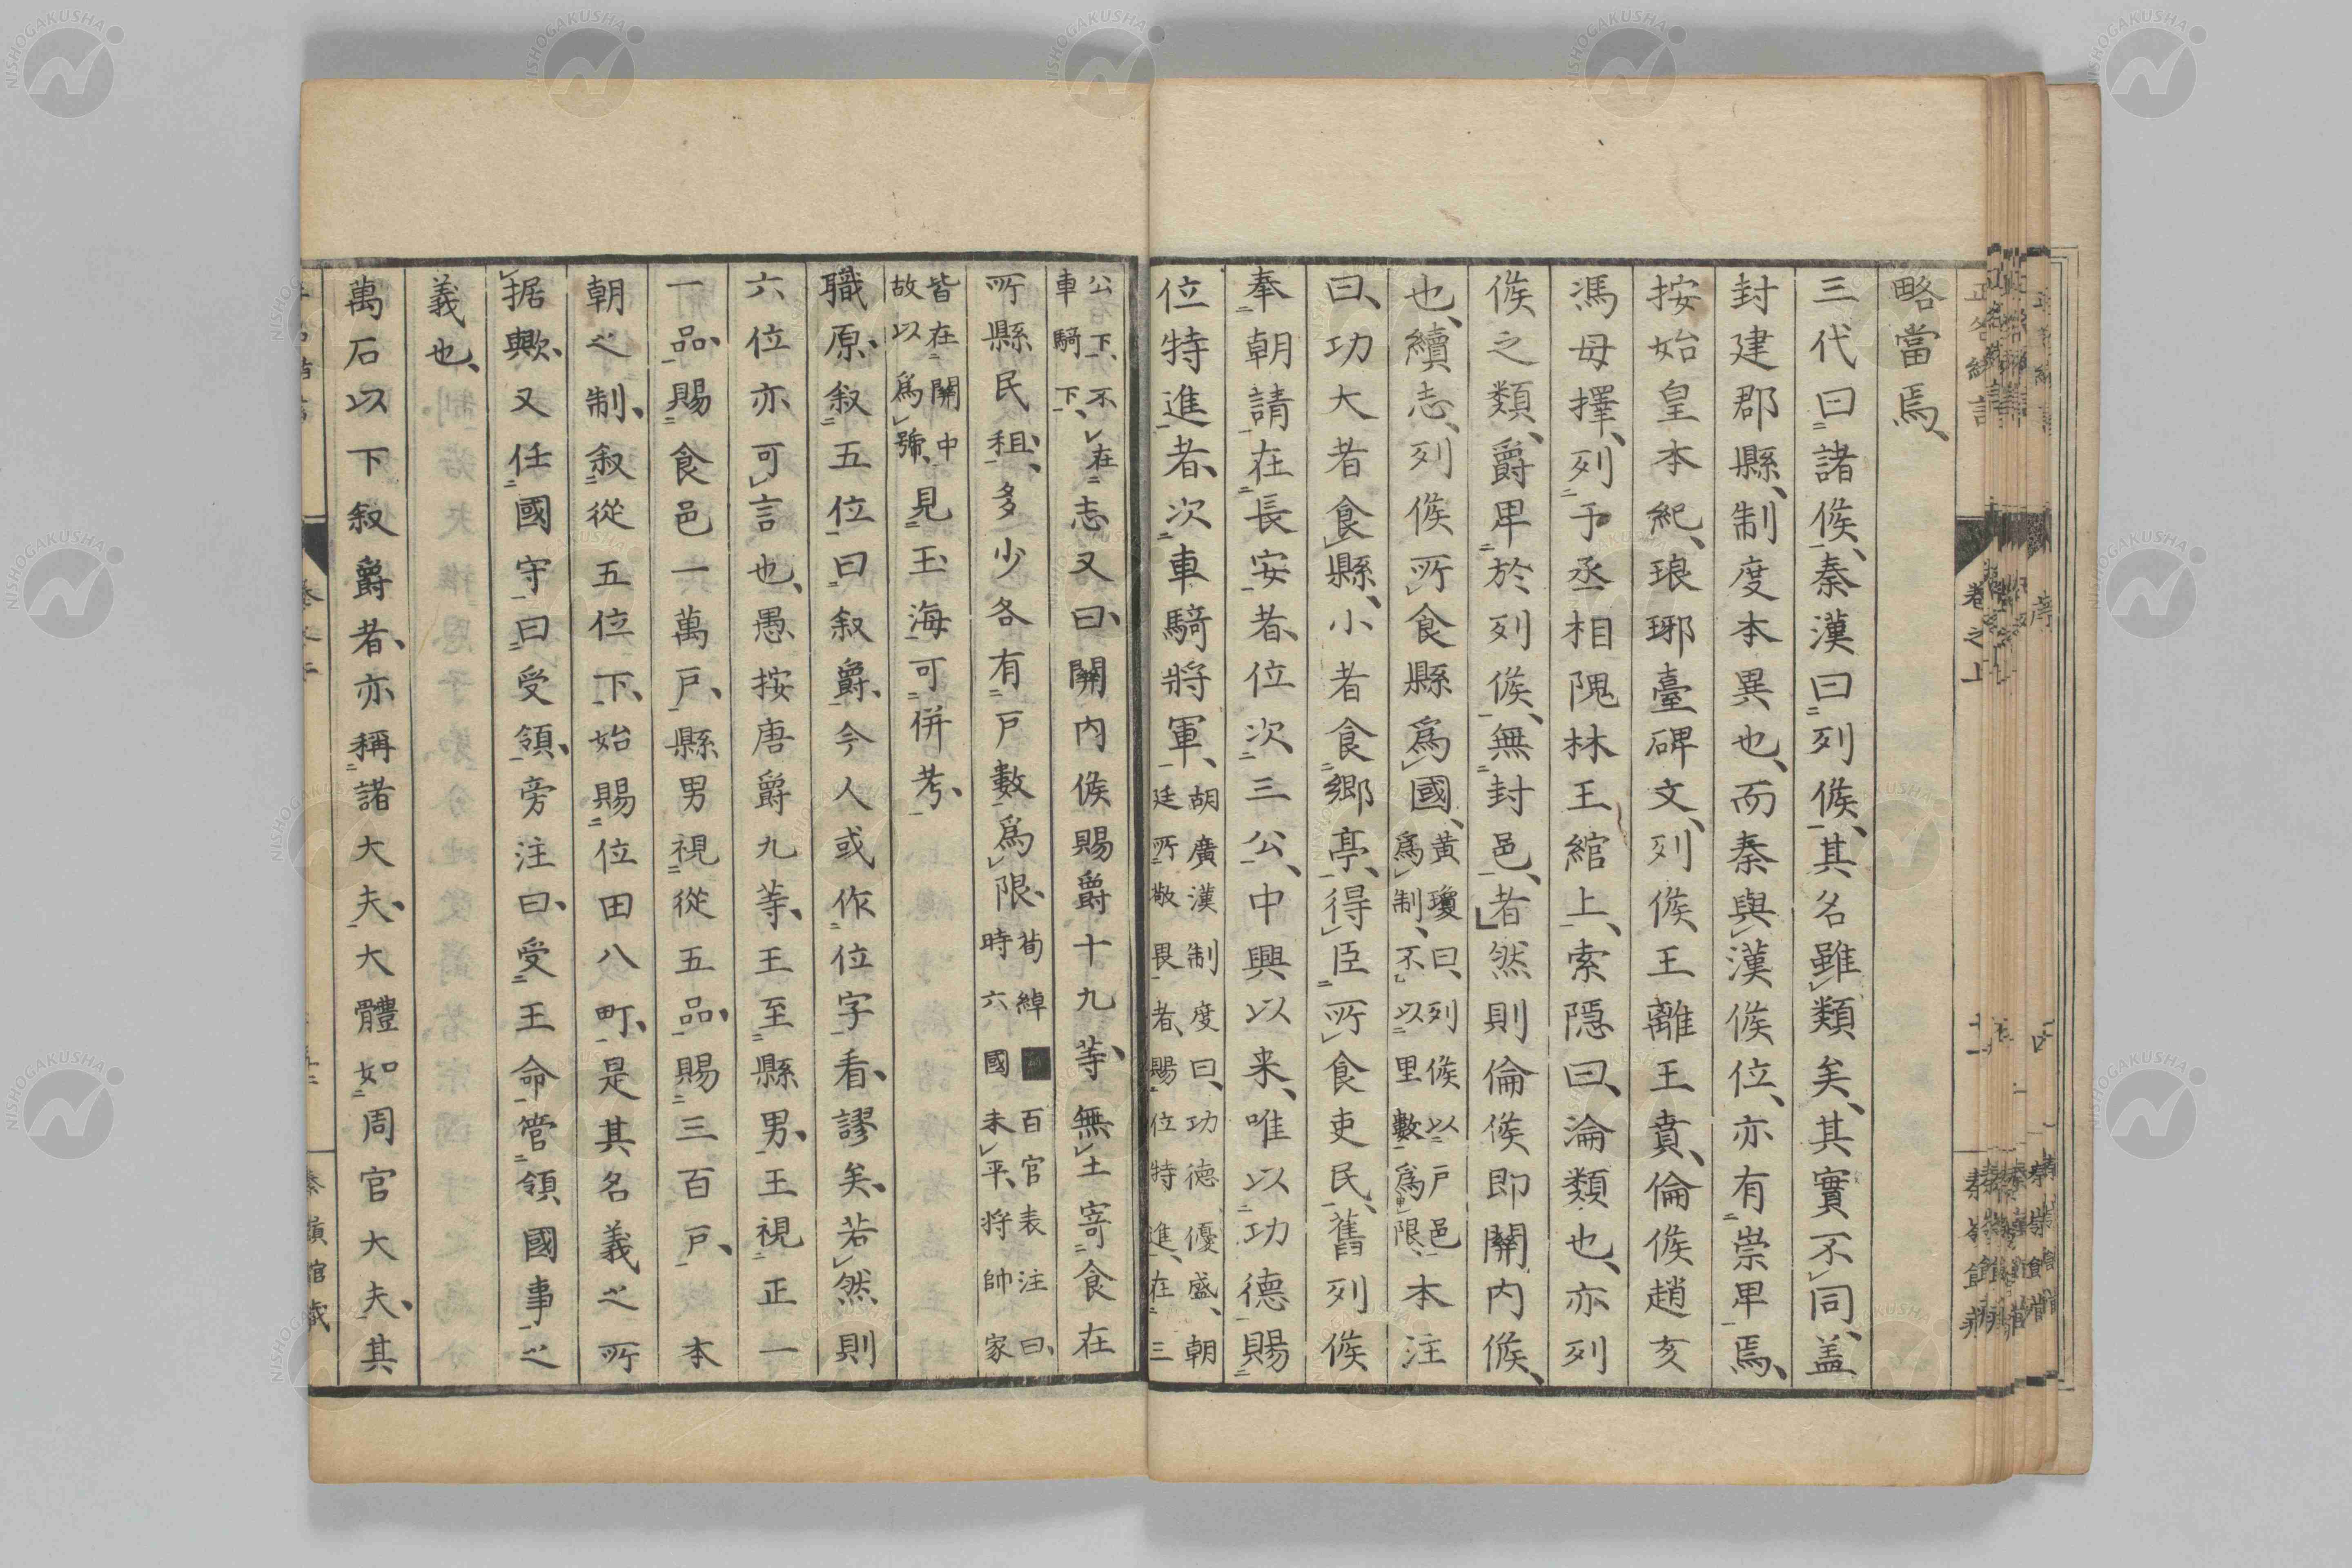 略當焉、
三代曰諸侯、秦漢曰列侯、其名雖類矣、其實不同、盖
封建郡縣、制度本異也、而秦與漢侯位、亦有崇卑焉、
按始皇本紀、琅琊臺碑文、列侯王離王賁、倫侯趙亥
馮毋擇、列于丞相隗林王綰上、索隱曰、淪類也、亦列
侯之類、爵卑於列侯、無封邑者、然則倫侯即關内侯、
也、續志、列侯所食縣爲國、黃瓊曰、列侯以戸邑爲制、不以里數爲限、本注
曰、功大者食縣、小者食鄉亭、得臣所食吏民、舊列侯
奉朝請在長安者、位次三公、中興以来、唯以功德賜
位特進者、次車騎將軍、胡廣漢制度曰、功德優盛、朝廷所敬畏者、賜位特進、在三
公下、不在車騎下、志又曰、關内侯賜爵十九等、無土寄食在
所縣民租、多少各有戸數爲限、荀綽百官表注曰、時六國未平、將帥家
皆在關中故以爲號、見玉海可併考、
職原叙五位曰叙爵、今人或作位字看、謬矣、若然則
六位亦可言也、愚按唐爵九等、王至縣男、王視正一
一品、賜食邑一萬戸、縣男視從五品、賜三百戸、本
朝之制、叙從五位下、始賜位田八町、是其名義之所
据歟、又任國守曰受領、旁注曰、受王命管領國事之
義也、
萬石以下叙爵者、亦稱諸大夫、大體如周官大夫、其
卷之上
NISHOGAKUSHA